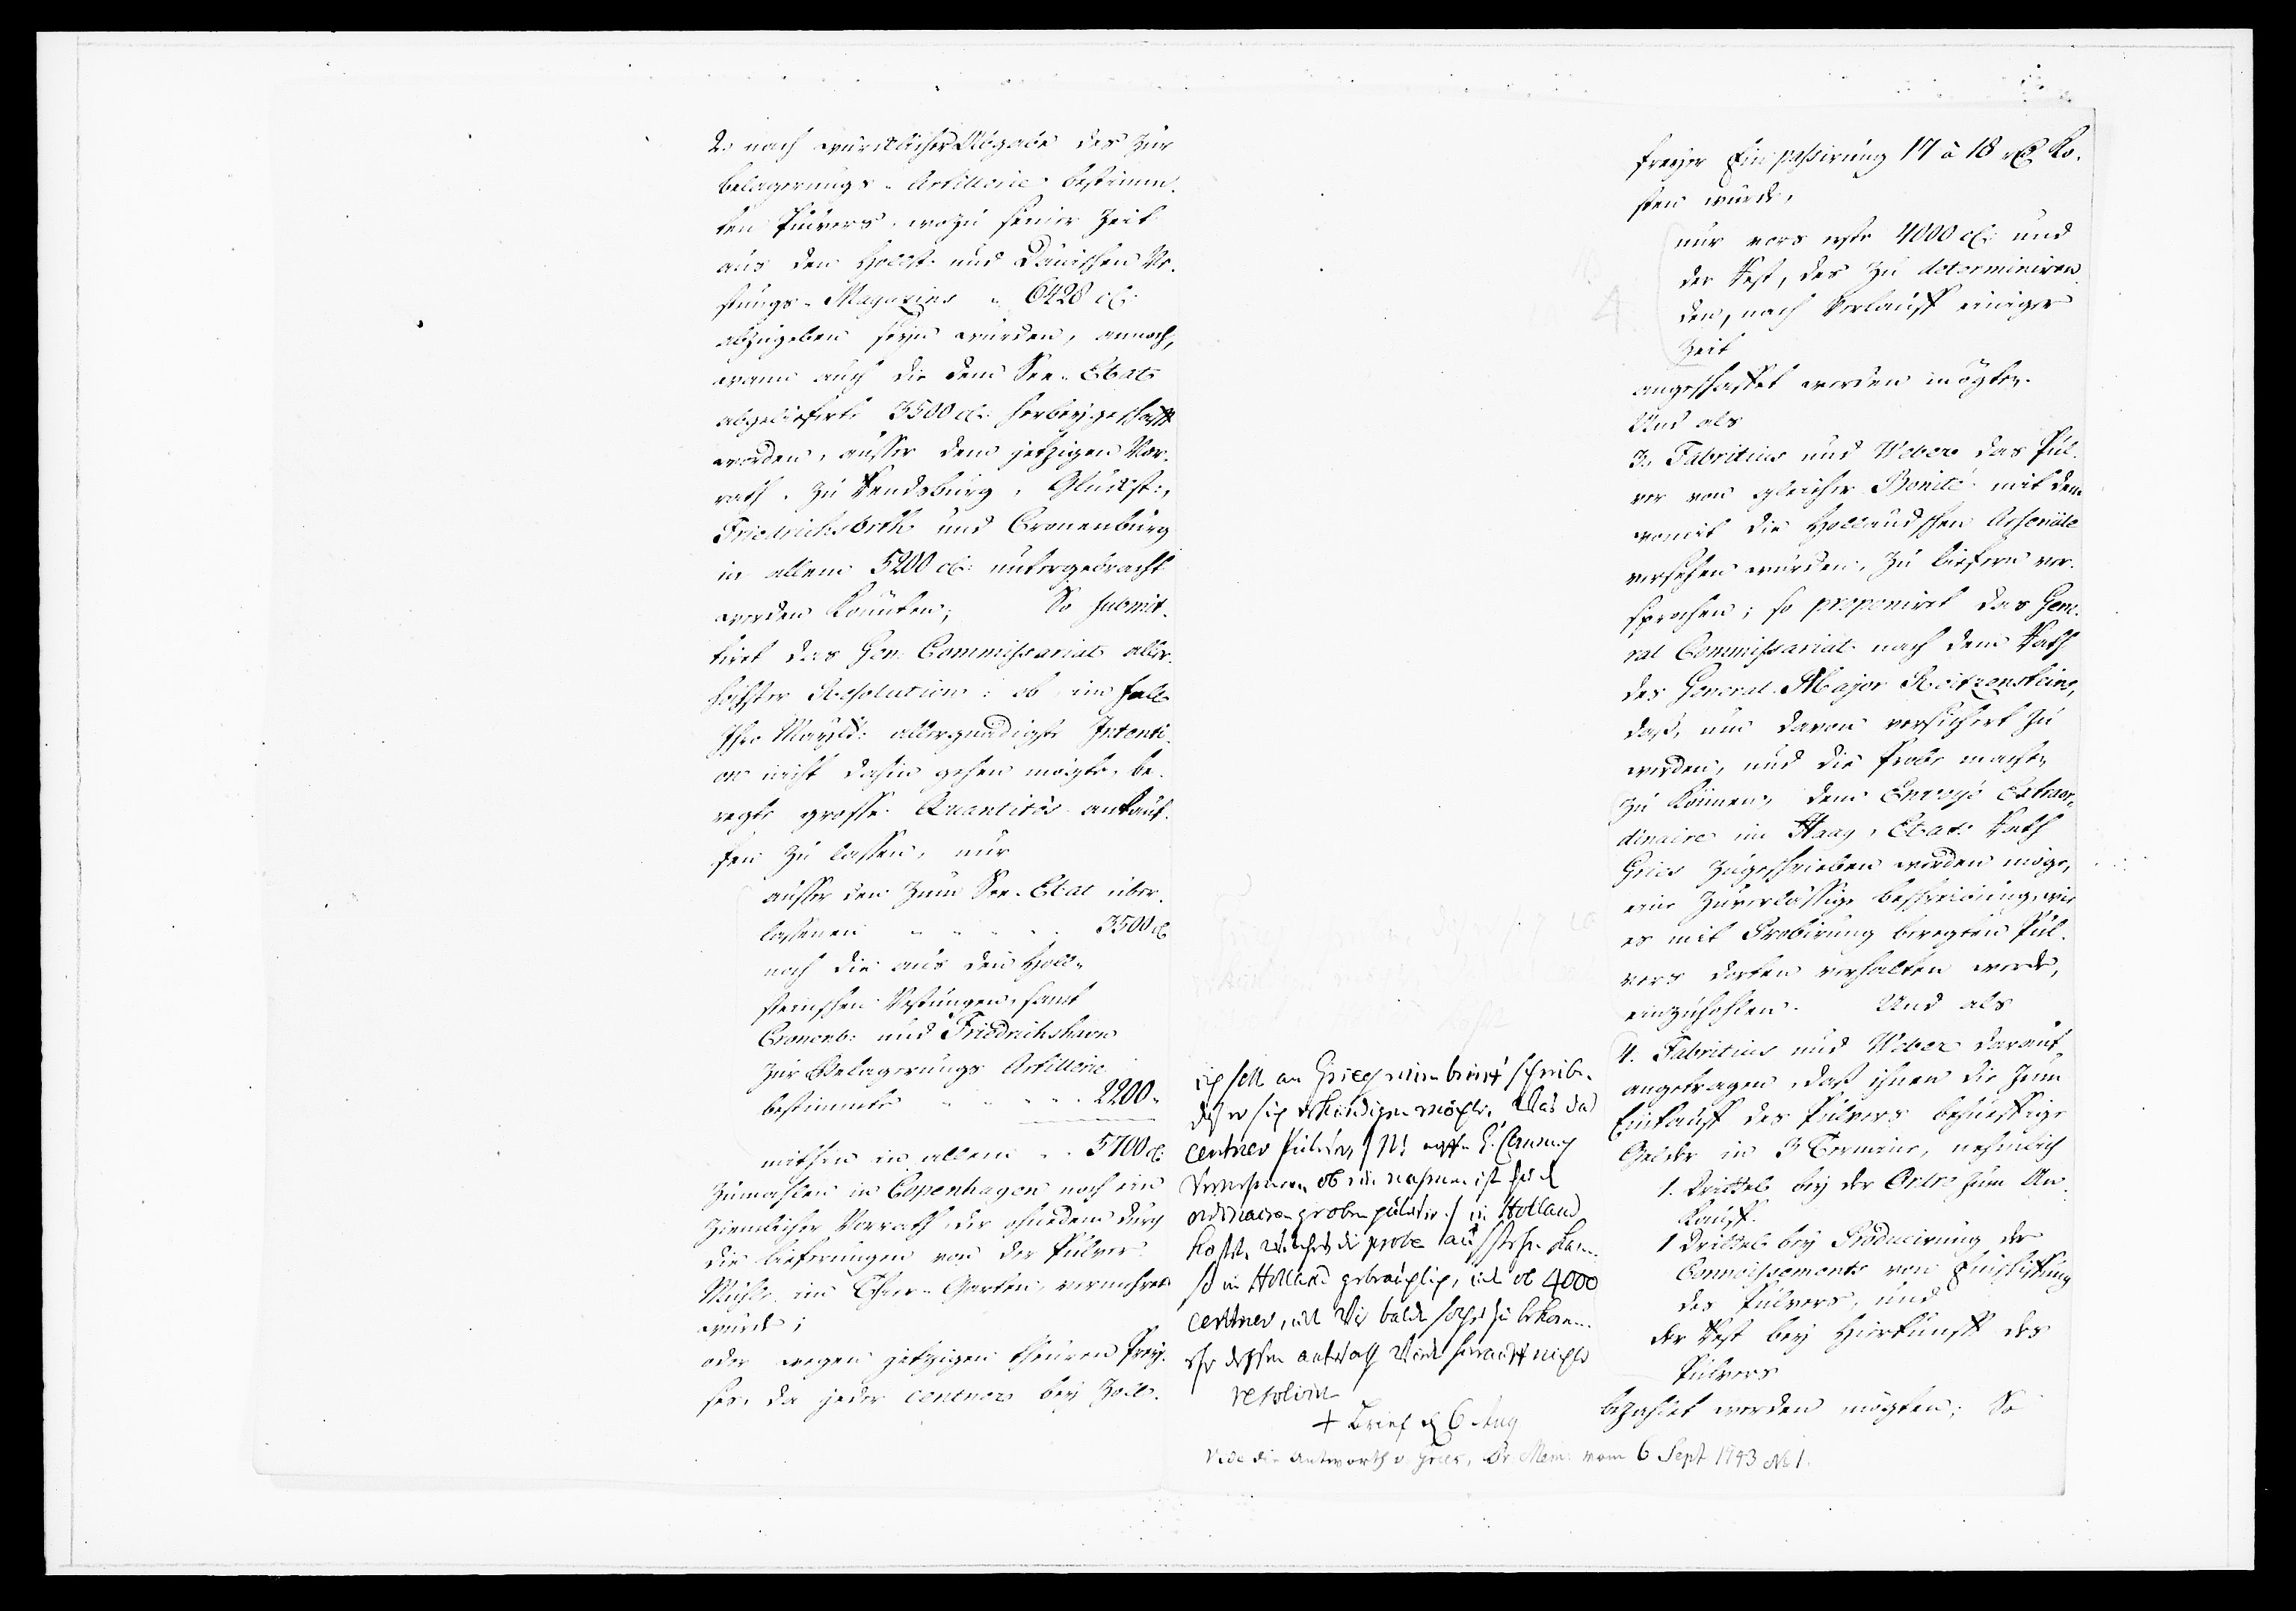 2. nach würcklicher Abgabe des zur
belagerungs-Artillerie bestimm-
ten Pulvers, wozu seiner Zeit
aus den Hollst: und Dänischen Ve-
stungs-Magazins 6428 cl:
abzugeben seyn würden, annoch,
wann auch die dem See-Etat
abgelieferte 3500 cl: herbeygeschafft
worden, ausser dem jetzigen Vor-
rath, zu Rendsburg, Glückst:,
Friedrichsorth und Cronenburg
in allem 5200 cl: untergebracht
werden könnten; So submit-
tiret das Gen: Commissariat aller-
höchster Resolution: ob im fall
Ihro Mayst: allergnädigste Intenti-
on nicht dahin gehen mögte, be-
regte grosse Quantité ankauf-
fen zu lassen, nur
ausser den zum See-Etat über-
lassenen 3500 cl
noch die aus den Holl-
steinschen Vestungen, samt
Cronenb: und Friedrichshavn
zur Belagerungs Artillerie
bestimmte 2200.
mithin in allem 5700 cl:
zumahlen in Copenhagen noch ein
ziemlicher Vorrath, der ohnedem durch
die lieferungen von der Pulver-
Mühle im Thier-Garten, vermehret
würde;
oder wegen jetzigen theuren Prey-
ses, da jeder Centner bey Zoll-
ich soll an Gries einen brieff schreiben
daß er sich erkundigen mögte, Was das
centner Pulver,
vernehmen ob ein nahmen ist
ordinairen groben pulver / in Holland
koste, welches die probe ausstehen kan
so in Holland gebräuchlich, und ob 4000
centner, und Wie balde solche zu bekommen
ehe dessen antwort wird hierauff nichts
resolvirt
+ Brief d 6 Aug
Vide die Antworth v. Gries, Dr. Mem: vom 6 Sept 1743 No 1.
freyer Einpassirung 17 à 18 rd ko-
sten würde,
nur vors erste 4000 cl: und
der Rest, des zu determiniren-
den, nach Verlauff einiger
Zeit
angeschaffet werden mögten.
Und als
3. Fabritius und Wever das Pul-
ver von gleicher Bonité mit dem
womit die Holländschen Arsenäle
versehen würden, zu liefern ver-
sprochen; so proponiret das Gene-
ral Commissariat nach dem Rath
des General-Major Reitzensteins,
daß, um davon versichert zu
werden, und die Probe machen
zu können, dem Envoyé Extraor-
dinaire im Haag, Etats Rath
Gries zugeschrieben werden möge,
eine zuverlässige beschreibung, wie
es mit Probirung beregten Pul-
vers dorten verhalten werde,
einzuhohlen. Und als
4. Fabritius und Wever darauf
angetragen, daß ihnen die zum
Einkauff des Pulvers behueffige
Gelder in 3 Termine, nehmlich
1. Drittel bey der Ordre zum An-
kauff.
1 Drittel bey Producirung der
Connoissements von Einschiffung
des Pulvers, und
der Rest bey Hierkunfft des
Pulvers
bezahlet werden mögten; So